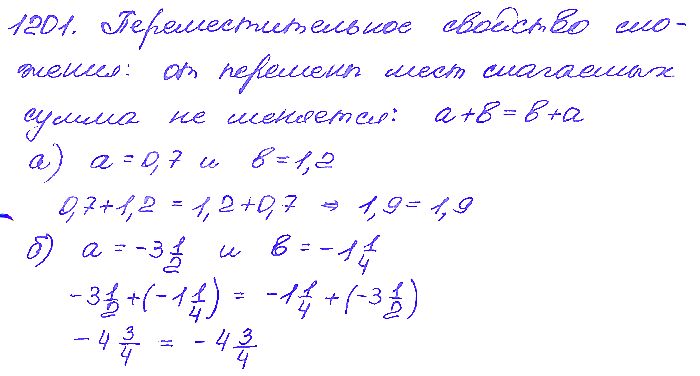 1201. Переместительное свойство сло-
жения: от перемены мест слагаемых
сумма не меняется: a+b=b+a
а) a=0,7 и b=1,2
0,7+1,2=1,2+0,7 ⇒ 1,9=1,9
б) a=-3 1/2 и b=-1 1/4
-3 1/2+(-1 1/4) = -1 1/4+(-3 1/2)
-4 3/4 = -4 3/4